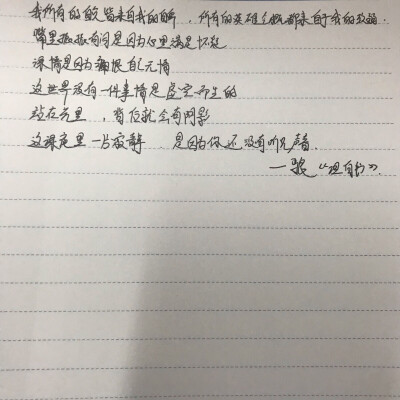 我所有的自负皆来自我的自卑，所有的英雄气概都来自于我的软弱.
嘴里振振有词是因为心里满是怀疑
深情是因为痛恨自己无情
这世界没有一件事情是虚空而生的
站在光里，背后就会有阴影
这深夜里一片寂静 是因为你还没有听见声音.
《坦白书》.